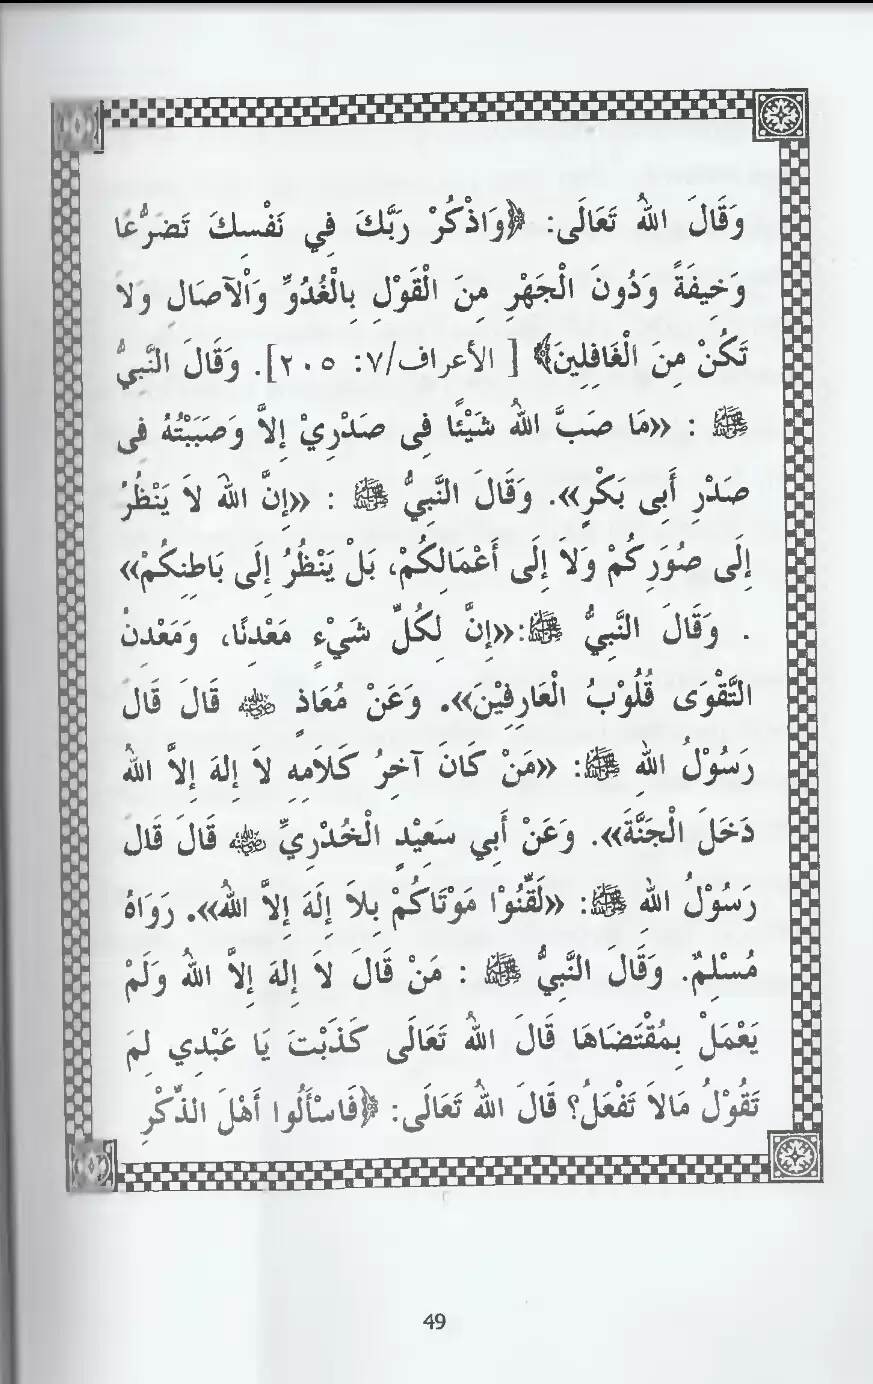 وَقَالَ اللهُ تَعَالَى: ﴿وَاذْكُرْ رَبَّكَ فِي نَفْسِكَ تَضَرُّعًا
وَخِيفَةً وَدُونَ الْجَهْرِ مِنَ الْقَوْلِ بِالْغُدُوِّ وَالْآصَالِ وَلا
تَكُنْ مِنَ الْغَافِلِينَ﴾ [ الأعراف/٧: ٢٠٥]. وَقَالَ النَّبِيُّ
ﷺ : «مَا صَبَّ اللهُ شَيْئًا فِى صَدْرِيْ إِلاَّ وَصَبَبْتُهُ فِى
صَدْرِ أَبِى بَكْرٍ». وَقَالَ النَّبِيُّ ﷺ : «إِنَّ اللهَ لاَ يَنْظُرُ
إِلَى صُوَرِكُمْ وَلاَ إِلَى أَعْمَالِكُمْ، بَلْ يَنْظُرُ إِلَى بَاطِنِكُمْ»
. وَقَالَ النَّبِيُّ ﷺ:«إِنَّ لِكُلِّ شَيْءٍ مَعْدِنًا، وَمَعْدِنُ
التَّقْوَى قُلُوْبُ الْعَارِفِيْنَ». وَعَنْ مُعَاذٍ ﷺ قَالَ قَالَ
رَسُوْلُ اللهِ ﷺ: «مَنْ كَانَ آخِرُ كَلاَمِهِ لاَ إِلهَ إِلاَّ اللهُ
دَخَلَ الْجَنَّةَ». وَعَنْ أَبِي سَعِيْدٍ الْخُدْرِيِّ ﷺ قَالَ قَالَ
رَسُوْلُ اللهِ ﷺ: «لَقِّنُوْا مَوْتَاكُمْ بِلاَ إِلَهَ إِلاَّ اللهُ». رَوَاهُ
مُسْلِمٌ. وَقَالَ النَّبِيُّ ﷺ : مَنْ قَالَ لاَ إِلهَ إِلاَّ اللهُ وَلَمْ
يَعْمَلْ بِمُقْتَضَاهَا قَالَ اللهُ تَعَالَى كَذَبْتَ يَا عَبْدِي لِمَ
تَقُوْلُ مَالاَ تَفْعَلُ؟ قَالَ اللهُ تَعَالَى: ﴿فَاسْأَلُوا أَهْلَ الذِّكْرِ
49